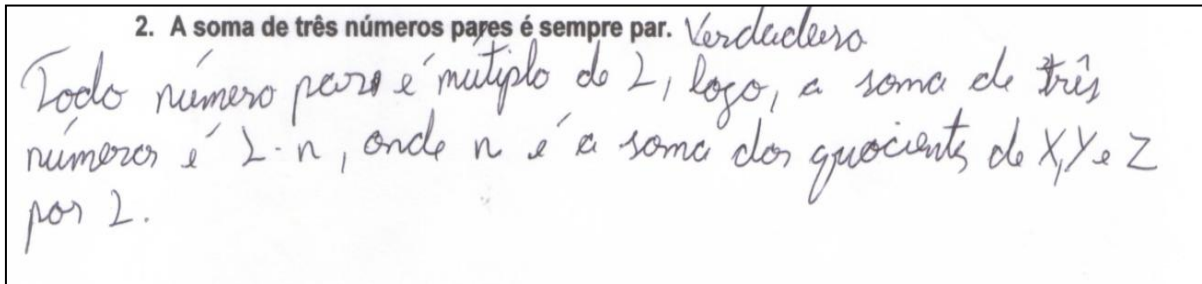 2. A soma de três números pares é sempre par. Verdadeiro
Todo número par é mútiplo do 2, logo, a soma de três
números é 2·n, onde n é a soma dos quocients de X, Y e Z
por 2.